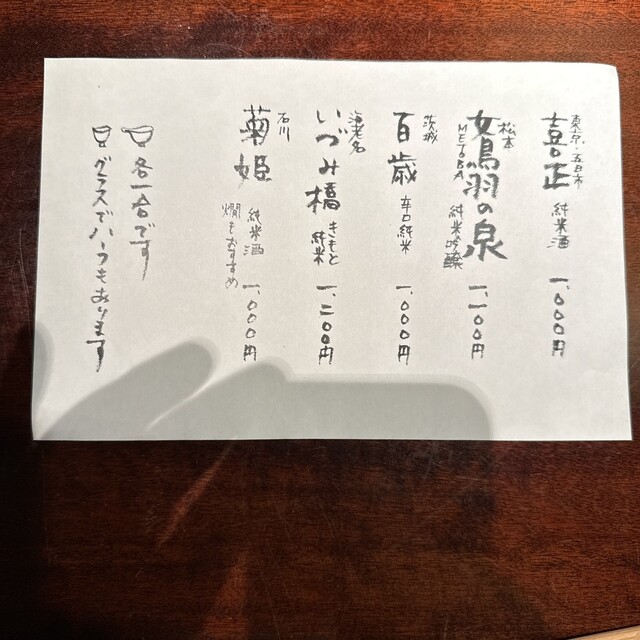 東京・五日市
喜正 純米酒 一、〇〇〇円
松本
女鳥羽の泉 純米吟醸 一、一〇〇円
METOBA
茨城
百歳 辛口純米 一、〇〇〇円
海老名
いづみ橋 きもと純米 一、二〇〇円
石川
菊姫 純米酒 一、〇〇〇円
燗もおすすめ
各一合です
グラスでハーフもあります